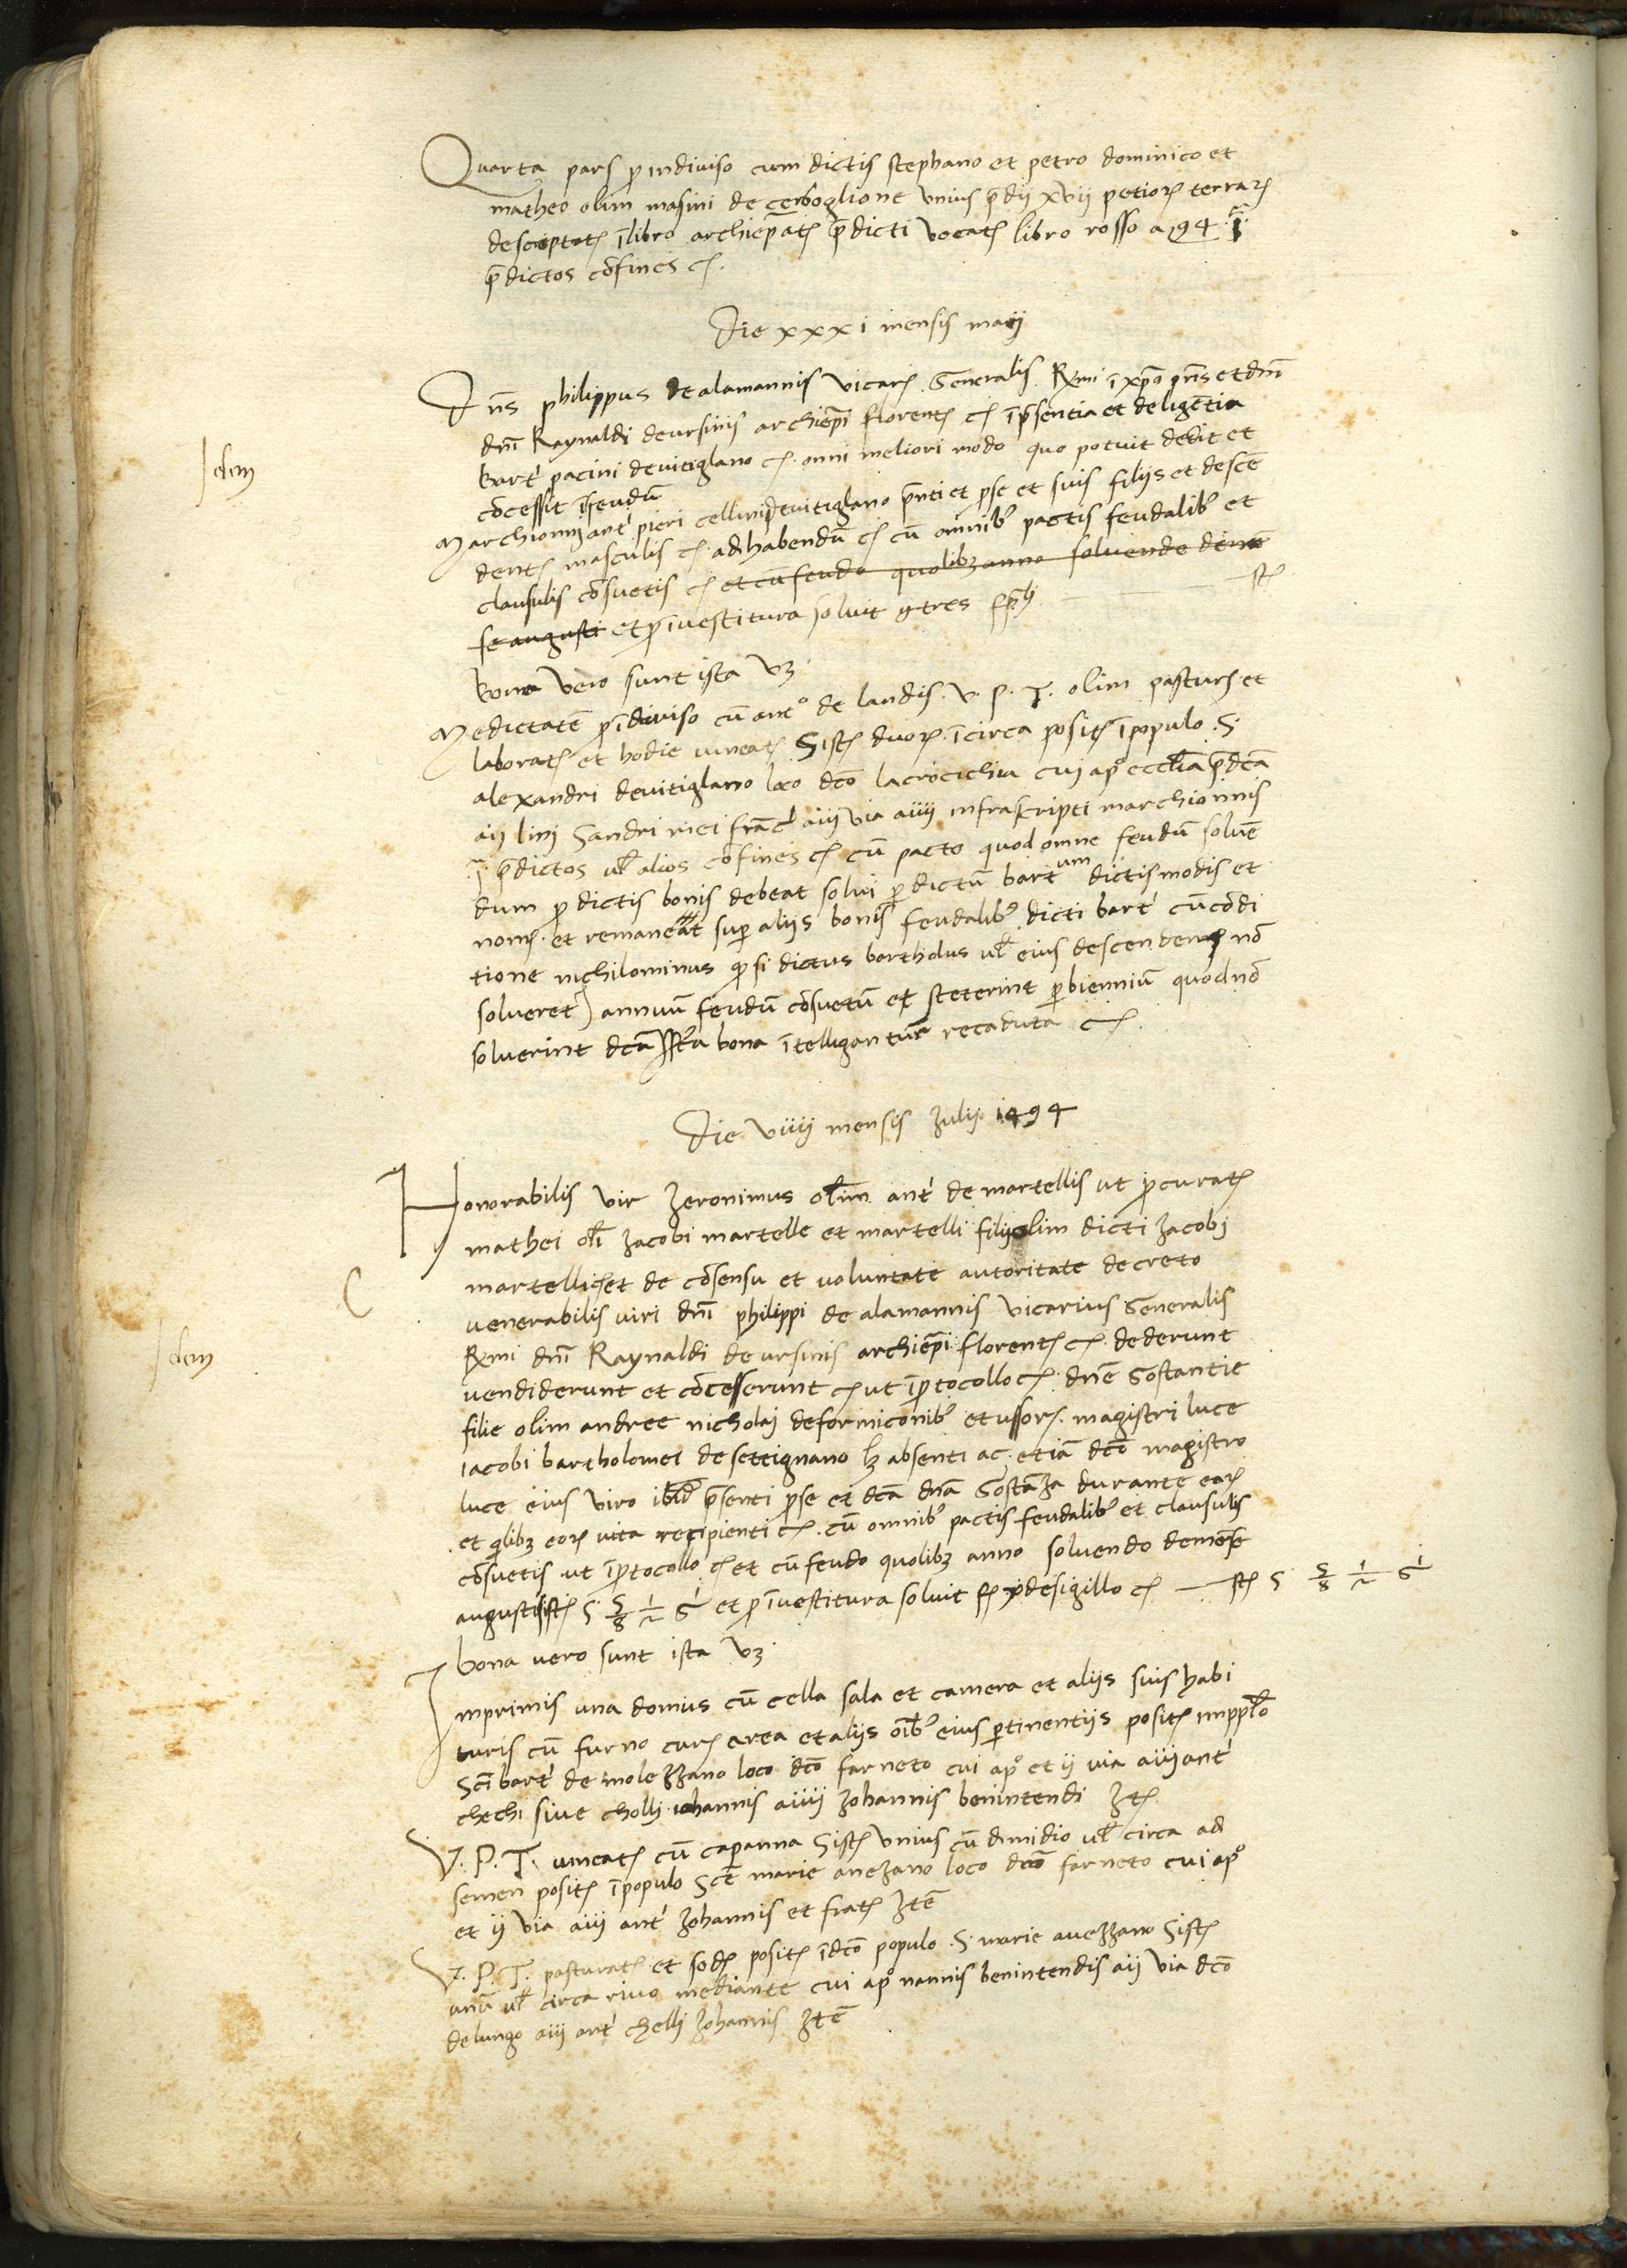 Quarta pars p indiviso cum dictis stephano et petro dominico et
matheo olim masini de cerboglione unius p̄dii xvii petiorꝫ terrarꝫ
descriptorꝫ ī libro archiep̄atꝫ p̄dicti vocatꝫ libro rosso a 194 ī
p̄dictos cōfines cꝫ
Die xxxi mensis maij
Dn̄s philippus de alamannis vicarꝫ generalis Rx̄mi ī xp̄o pr̄is et dn̄i
Idem
dn̄i Raynaldi de ursinis archiep̄i florentꝫ cꝫ ī p̄sentia et de ligētia
bart' pacini de vitiglano cꝫ omni meliori modo quo potuit dedit et
cōcessit ī feudū
Marchionni ant' pieri cellini de vitiglano p̄nti et p se et suis filiis et descē
dentꝫ masculis cꝫ ad habendū cꝫ cū omnib' pactis feudalib' et
clausulis cōsuetis cꝫ et cū feudo quolibꝫ anno solvendo de mē
se augusti et p īvestitura solvit g tres
bona vero sunt ista vꝫ
Medietatē p īdiviso cū ant° de landis v. p. T. olim pasturꝫ et
laboratꝫ et hodie vineatꝫ Sistꝫ duorꝫ ī circa positꝫ ī populo S
alexandri de vitiglano loco dc̄o la crocichia cui apº ecclīa p̄dc̄a
aij lini Sandri mei frāc' aiij via aiiij infrascripti marchionnis
ī p̄dictos ul̄ alios cōfines cꝫ cū pacto quod omne feudū solvē
dum p dictis bonis debeat solvi p dictū bart um dictis modis et
nomꝫ et remaneat sup aliis bonis feudalib' dicti bart' cū cōdi
tione nichilominus q̄ si dictus bartholus ul̄ eius descendens nō
solveret annuū feudū cōsuetū et steterint p bienniū quod nō
solverint dc̄a bona ītelligantur recaduta cꝫ
Die viiij mensis Julij 1494
Honorabilis vir Jeronimus olim ant' de martellis ut p̄curatꝫ
mathei ol̄i Jacobi martelli et martelli filij olim dicti Jacobi
C
martelli cꝫ et de cōsensu et voluntate autoritate decreto
venerabilis viri dn̄i philippi de alamannis vicarius Generalis
Idem
Rx̄mi dn̄i Raynaldi de ursinis archiep̄i florentꝫ cꝫ dederunt
vendiderunt et cōcesserunt cꝫ ut ī p̄tocollo cꝫ dn̄e Gostantie
filie olim andree nicholai de formiconib' et ussorꝫ magistri luce
iacobi bartholomei de settignano lꝫ absenti ac etiā dc̄o magistro
luce eius viro ibid' p̄senti p se et dc̄a dn̄a Gostāza durante eorꝫ
et q̄libꝫ eorꝫ vita recipienti cꝫ cū omnib' pactis feudalib' et clausulis
cōsuetis ut ī p̄tocollo cꝫ et cū feudo quolibꝫ anno solvendo de mēse
augusti stꝫ 5 5/8 1/2 1/6 et p īvestitura solvit de sigillo cꝫ — stꝫ 5 5/8 1/2 1/6
bona vero sunt ista vꝫ
Inprimis una domus cū cella sala et camera et aliis suis habi
turis cū furno curꝫ area et aliis oīb' eius ptinentiis positꝫ in ppl̄o
Sc̄i bart' de molezzano loco dc̄o farneto cui apº et ij via aiij ant'
chechi sive cholli iohannis aiiij Johannis benintendi Itꝫ
V. P. T. vineatꝫ cū capanna Sistꝫ unius cū dimidio ul̄ circa ad
semen positꝫ ī populo Sc̄e marie a vezano loco dc̄o farneto cui apº
et ij via aiij ant' Johannis et fratꝫ Itē
V. P. T. pasturatꝫ et sodꝫ positꝫ ī dc̄o populo S. marie a vezzano Sistꝫ
unū ul̄ circa rivo mediante cui apº nannis benintendis aij via dc̄o
de lungo aiij ant' chelli Johannis Itē